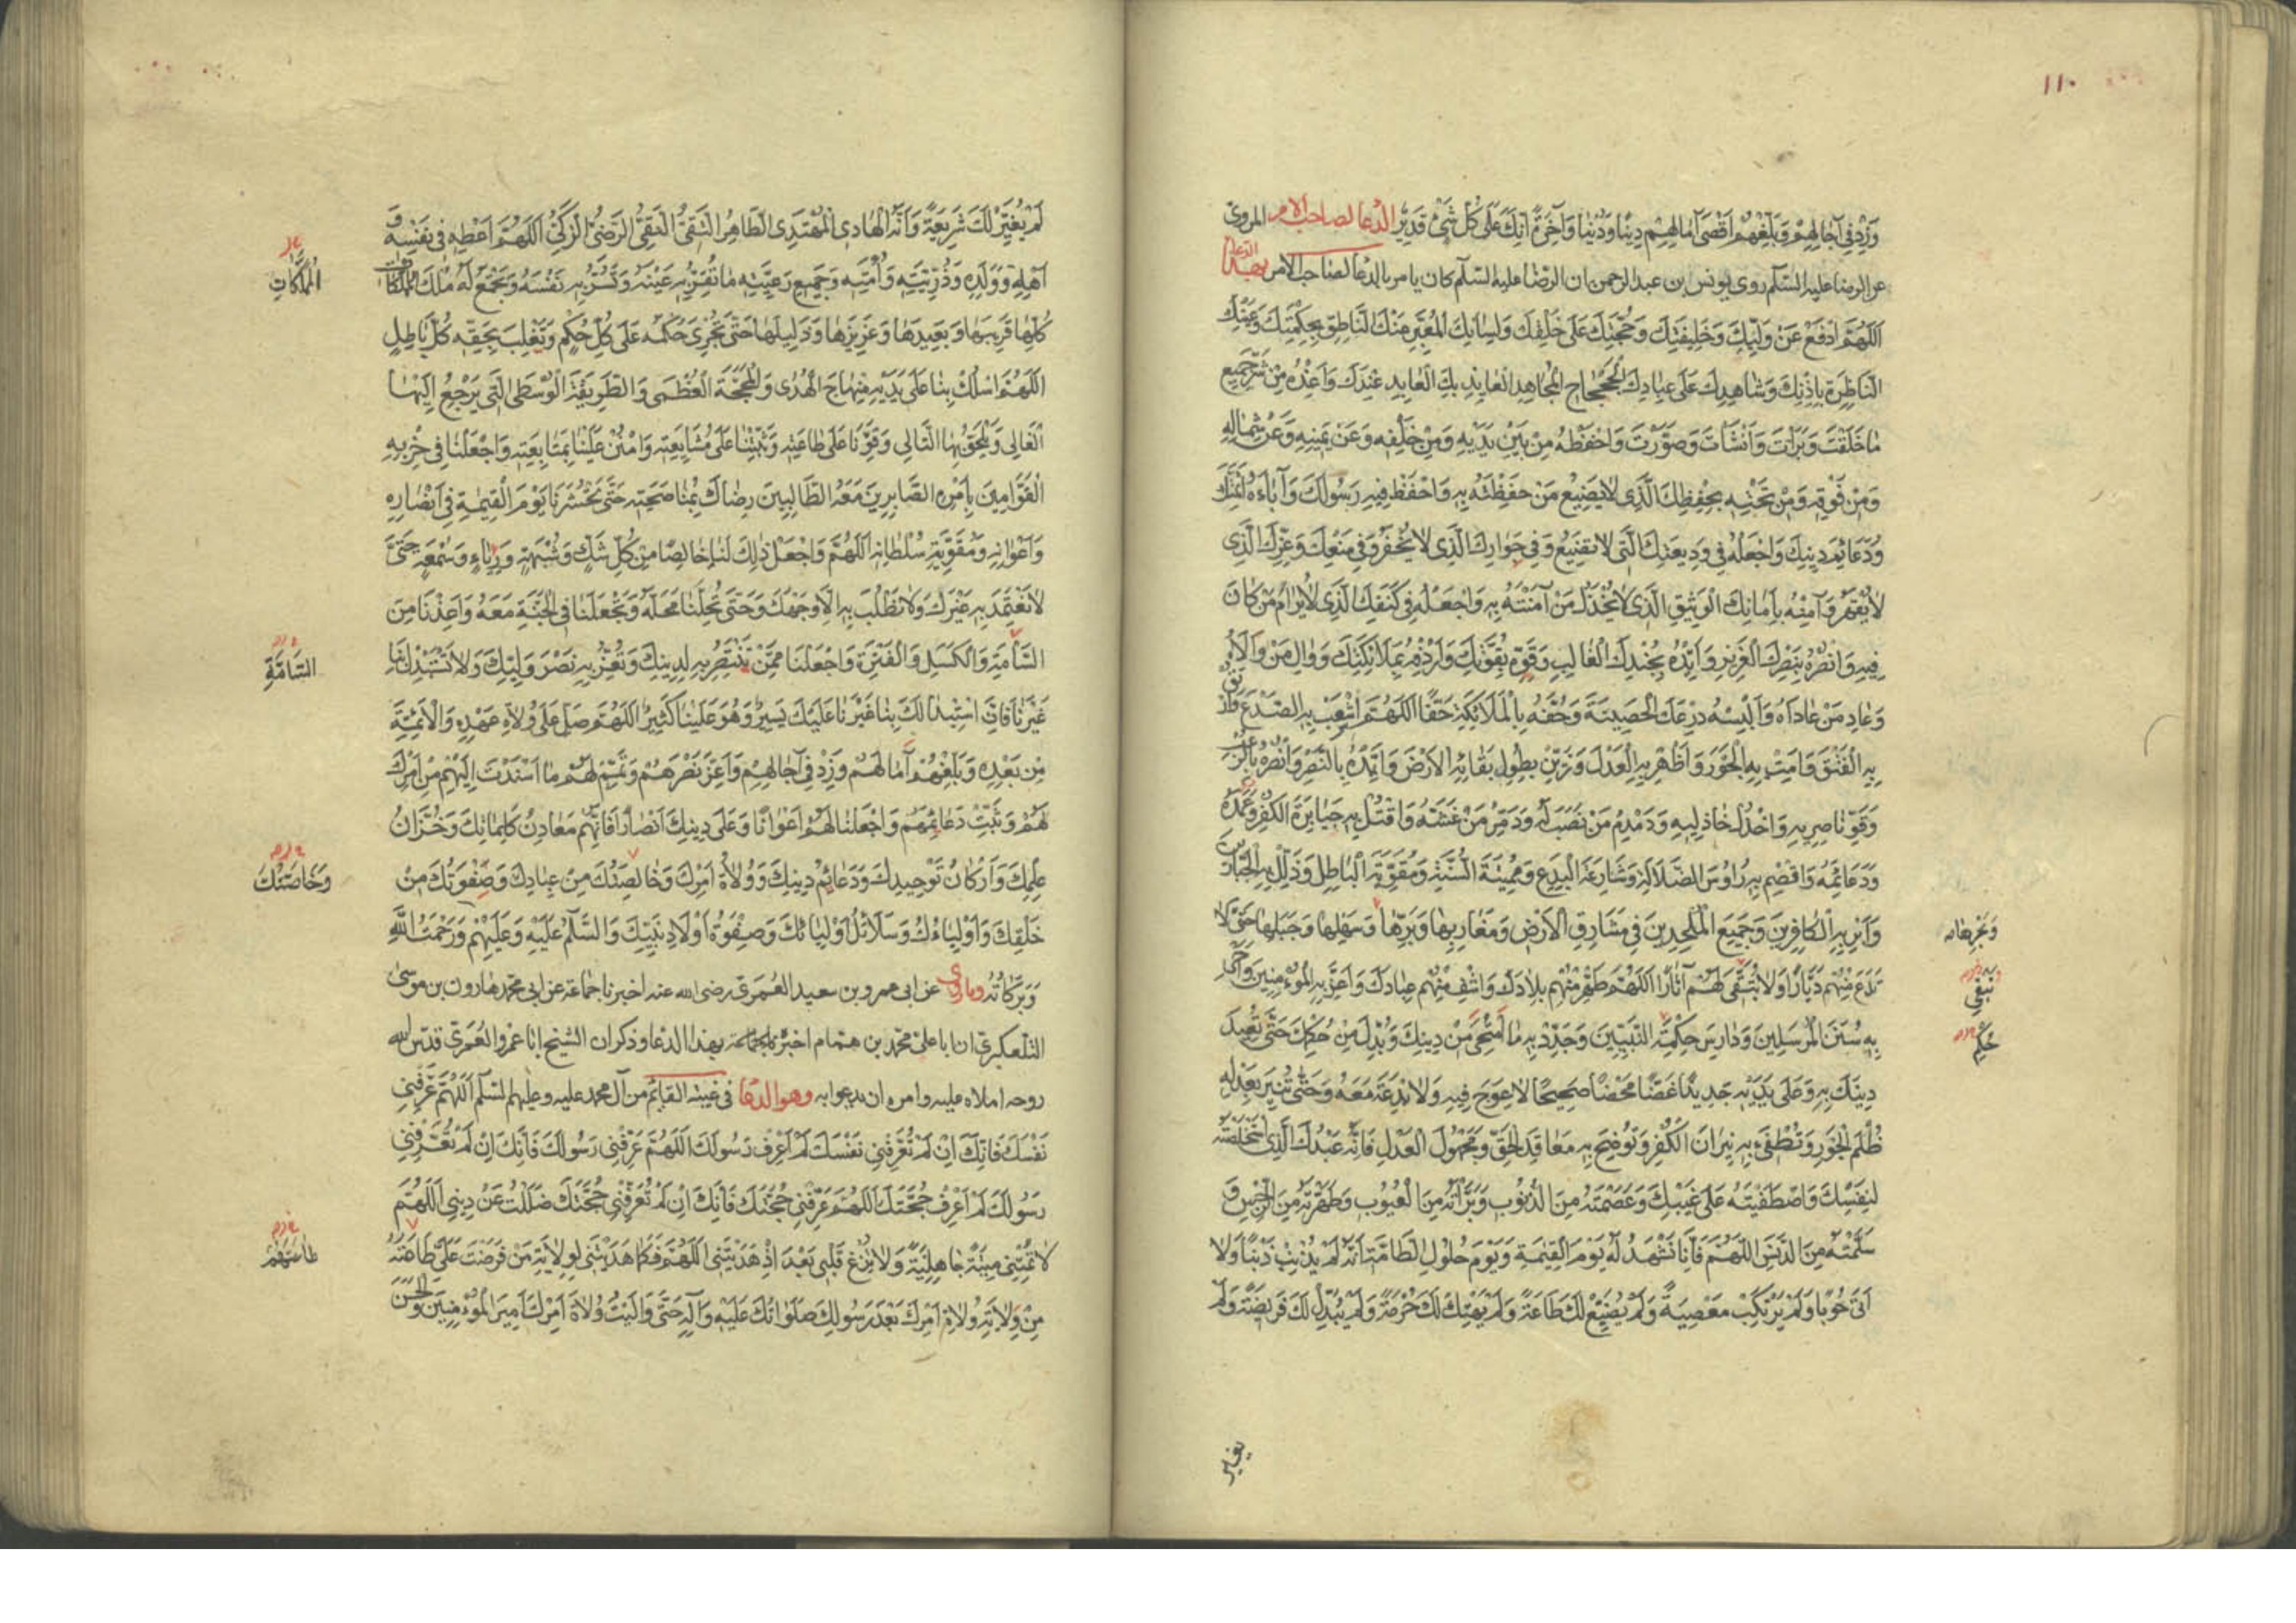 ١١٠
وَزِدْ فِي آجَالِهِمْ وَبَلِّغْهُمْ أَقْصَى آمَالِهِمْ دِينًا وَدُنْيَا وَآخِرَةً إِنَّكَ عَلَى كُلِّ شَيْءٍ قَدِيرٌ الدعا لصاحب الامر المروى
عن الرضا عليه السلام روى يونس بن عبد الرحمن ان الرضا عليه السلام كان يامر بالدعا لصاحب الامر بهذا الدعا
اَللّهُمَّ ادْفَعْ عَنْ وَلِيِّكَ وَخَلِيفَتِكَ وَحُجَّتِكَ عَلَى خَلْقِكَ وَلِسَانِكَ الْمُعَبِّرِ عَنْكَ النَّاطِقِ بِحِكْمَتِكَ وَعَيْنِكَ
النَّاظِرَةِ بِاِذْنِكَ وَشَاهِدِكَ عَلَى عِبَادِكَ الْجَحْجَاحِ الْمُجَاهِدِ الْعَائِذِ بِكَ الْعَابِدِ عِنْدَكَ وَاَعِذْهُ مِنْ شَرِّ جَمِيعِ
مَا خَلَقْتَ وَبَرَأْتَ وَاَنْشَأْتَ وَصَوَّرْتَ وَاحْفَظْهُ مِنْ بَيْنِ يَدَيْهِ وَمِنْ خَلْفِهِ وَعَنْ يَمِينِهِ وَعَنْ شِمَالِهِ
وَمِنْ فَوْقِهِ وَمِنْ تَحْتِهِ بِحِفْظِكَ الَّذِي لَا يَضِيعُ مَنْ حَفِظْتَهُ بِهِ وَاحْفَظْ فِيهِ رَسُولَكَ وَآبَاءَهُ اَئِمَّتَكَ
وَدَعَائِمَ دِينِكَ وَاجْعَلْهُ فِي وَدِيعَتِكَ الَّتِي لَا تَضِيعُ وَفِي جِوَارِكَ الَّذِي لَا يُخْفَرُ وَفِي مَنْعِكَ وَعِزِّكَ الَّذِي
لَا يُقْهَرُ وَآمِنْهُ بِاَمَانِكَ الْوَثِيقِ الَّذِي لَا يُخْذَلُ مَنْ آمَنْتَهُ بِهِ وَاجْعَلْهُ فِي كَنَفِكَ الَّذِي لَا يُرَامُ مَنْ كَانَ
فِيهِ وَانْصُرْهُ بِنَصْرِكَ الْعَزِيزِ وَاَيِّدْهُ بِجُنْدِكَ الْغَالِبِ وَقَوِّهِ بِقُوَّتِكَ وَاَرْدِفْهُ بِمَلَائِكَتِكَ وَوَالِ مَنْ وَالَاهُ
وَعَادِ مَنْ عَادَاهُ وَاَلْبِسْهُ دِرْعَكَ الْحَصِينَةَ وَحُفَّهُ بِالْمَلَائِكَةِ حَفًّا اَللّهُمَّ اشْعَبْ بِهِ الصَّدْعَ وَارْتُقْ
بِهِ الْفَتْقَ وَاَمِتْ بِهِ الْجَوْرَ وَاَظْهِرْ بِهِ الْعَدْلَ وَزَيِّنْ بِطُولِ بَقَائِهِ الْاَرْضَ وَاَيِّدْهُ بِالنَّصْرِ وَانْصُرْهُ بِالرُّعْبِ
وَقَوِّ نَاصِرِيهِ وَاخْذُلْ خَاذِلِيهِ وَدَمْدِمْ مَنْ نَصَبَ لَهُ وَدَمِّرْ مَنْ غَشَّهُ وَاقْتُلْ بِهِ جَبَابِرَةَ الْكُفْرِ وَعَمَدَهُ
وَدَعَائِمَهُ وَاقْصِمْ بِهِ رُءُوسَ الضَّلَالَةِ وَشَارِعَةَ الْبِدَعِ وَمُمِيتَةَ السُّنَّةِ وَمُقَوِّيَةَ الْبَاطِلِ وَذَلِّلْ بِهِ الْجَبَّارِينَ
وَاَبِرْ بِهِ الْكَافِرِينَ وَجَمِيعَ الْمُلْحِدِينَ فِي مَشَارِقِ الْاَرْضِ وَمَغَارِبِهَا وَبَرِّهَا وَسَهْلِهَا وَجَبَلِهَا حَتَّى لَا
وَبَحْرِهَا
تَدَعَ مِنْهُمْ دَيَّارًا وَلَا تُبْقَى لَهُمْ آثَارًا اَللّهُمَّ طَهِّرْ مِنْهُمْ بِلَادَكَ وَاشْفِ مِنْهُمْ عِبَادَكَ وَاَعِزَّ بِهِ الْمُؤْمِنِينَ وَاَحْيِ
تُبْقِي
بِهِ سُنَنَ الْمُرْسَلِينَ وَدَارِسَ حِكْمَةِ النَّبِيِّينَ وَجَدِّدْ بِهِ مَا امْتَحَى مِنْ دِينِكَ وَبُدِّلَ مِنْ حُكْمِكَ حَتَّى تُعِيدَ
حُكْمِ
دِينَكَ بِهِ وَعَلَى يَدَيْهِ جَدِيدًا غَضًّا مَحْضًا صَحِيحًا لَا عِوَجَ فِيهِ وَلَا بِدْعَةَ مَعَهُ وَحَتَّى تُنِيرَ بِعَدْلِهِ
ظُلَمَ الْجَوْرِ وَتُطْفِئَ بِهِ نِيرَانَ الْكُفْرِ وَتُوضِحَ بِهِ مَعَاقِدَ الْحَقِّ وَمَجْهُولَ الْعَدْلِ فَاِنَّهُ عَبْدُكَ الَّذِي اسْتَخْلَصْتَهُ
لِنَفْسِكَ وَاصْطَفَيْتَهُ عَلَى غَيْبِكَ وَعَصَمْتَهُ مِنَ الذُّنُوبِ وَبَرَّأْتَهُ مِنَ الْعُيُوبِ وَطَهَّرْتَهُ مِنَ الرِّجْسِ وَ
سَلَّمْتَهُ مِنَ الدَّنَسِ اَللّهُمَّ فَاِنَّا نَشْهَدُ لَهُ يَوْمَ الْقِيٰمَةِ وَيَوْمَ حُلُولِ الطَّامَّةِ اَنَّهُ لَمْ يُذْنِبْ ذَنْبًا وَلَا
اَتَى حُوبًا وَلَمْ يَرْتَكِبْ مَعْصِيَةً وَلَمْ يُضَيِّعْ لَكَ طَاعَةً وَلَمْ يَهْتِكْ لَكَ حُرْمَةً وَلَمْ يُبَدِّلْ لَكَ فَرِيضَةً وَلَمْ
يغير
لَمْ يُغَيِّرْ لَكَ شَرِيعَةً وَاَنَّهُ الْهَادِي الْمُهْتَدِي الطَّاهِرُ التَّقِيُّ النَّقِيُّ الرَّضِيُّ الزَّكِيُّ اَللّهُمَّ اَعْطِهِ فِي نَفْسِهِ وَ
اَهْلِهِ وَوَلَدِهِ وَذُرِّيَّتِهِ وَاُمَّتِهِ وَجَمِيعِ رَعِيَّتِهِ مَا تُقِرُّ بِهِ عَيْنَهُ وَتَسُرُّ بِهِ نَفْسَهُ وَتَجْمَعُ لَهُ مُلْكَ الْمُمْلَكَاتِ
الْمُمَلَّكَاتِ
كُلِّهَا قَرِيبِهَا وَبَعِيدِهَا وَعَزِيزِهَا وَذَلِيلِهَا حَتَّى تُجْرِيَ حُكْمَهُ عَلَى كُلِّ حُكْمٍ وَتَغْلِبَ بِحَقِّهِ كُلَّ بَاطِلٍ
اَللّهُمَّ اسْلُكْ بِنَا عَلَى يَدَيْهِ مِنْهَاجَ الْهُدَى وَالْمَحَجَّةَ الْعُظْمَى وَالطَّرِيقَةَ الْوُسْطَى الَّتِي يَرْجِعُ اِلَيْهَا
الْغَالِي وَيَلْحَقُ بِهَا التَّالِي وَقَوِّنَا عَلَى طَاعَتِهِ وَثَبِّتْنَا عَلَى مُشَايَعَتِهِ وَامْنُنْ عَلَيْنَا بِمُتَابَعَتِهِ وَاجْعَلْنَا فِي حِزْبِهِ
الْقَوَّامِينَ بِاَمْرِهِ الصَّابِرِينَ مَعَهُ الطَّالِبِينَ رِضَاكَ بِمُنَاصَحَتِهِ حَتَّى تَحْشُرَنَا يَوْمَ الْقِيٰمَةِ فِي اَنْصَارِهِ
وَاَعْوَانِهِ وَمُقَوِّيَةِ سُلْطَانِهِ اَللّهُمَّ وَاجْعَلْ ذٰلِكَ لَنَا خَالِصًا مِنْ كُلِّ شَكٍّ وَشُبْهَةٍ وَرِيَاءٍ وَسُمْعَةٍ حَتَّى
لَا نَعْتَمِدَ بِهِ غَيْرَكَ وَلَا نَطْلُبَ بِهِ اِلَّا وَجْهَكَ وَحَتَّى تُحِلَّنَا مَحَلَّهُ وَتَجْعَلَنَا فِي الْجَنَّةِ مَعَهُ وَاَعِذْنَا مِنَ
السَّأْمَةِ وَالْكَسَلِ وَالْفَتْرَةِ وَاجْعَلْنَا مِمَّنْ تَنْتَصِرُ بِهِ لِدِينِكَ وَتُعِزُّ بِهِ نَصْرَ وَلِيِّكَ وَلَا تَسْتَبْدِلْ بِنَا
السَّامَّةِ
غَيْرَنَا فَاِنَّ اسْتِبْدَالَكَ بِنَا غَيْرَنَا عَلَيْكَ يَسِيرٌ وَهُوَ عَلَيْنَا كَثِيرٌ اَللّهُمَّ صَلِّ عَلَى وُلَاةِ عَهْدِهِ وَالْاَئِمَّةِ
مِنْ بَعْدِهِ وَبَلِّغْهُمْ آمَالَهُمْ وَزِدْ فِي آجَالِهِمْ وَاَعِزَّ نَصْرَهُمْ وَتَمِّمْ لَهُمْ مَا اَسْنَدْتَ اِلَيْهِمْ مِنْ اَمْرِكَ
لَهُمْ وَثَبِّتْ دَعَائِمَهُمْ وَاجْعَلْنَا لَهُمْ اَعْوَانًا وَعَلَى دِينِكَ اَنْصَارًا فَاِنَّهُمْ مَعَادِنُ كَلِمَاتِكَ وَخُزَّانُ
عِلْمِكَ وَاَرْكَانُ تَوْحِيدِكَ وَدَعَائِمُ دِينِكَ وَوُلَاةُ اَمْرِكَ وَخَالِصَتُكَ مِنْ عِبَادِكَ وَصَفْوَتُكَ مِنْ
وَخَاصَّتُكَ
خَلْقِكَ وَاَوْلِيَاءُكَ وَسَلَائِلُ اَوْلِيَائِكَ وَصَفْوَةُ اَوْلَادِ نَبِيِّكَ وَالسَّلَامُ عَلَيْهِ وَعَلَيْهِمْ وَرَحْمَةُ اللهِ
وَبَرَكَاتُهُ وما روى عن ابى عمرو بن سعيد العمرى رضى الله عنه اخبرنا جماعة عن ابى محمد هارون بن موسى
التلعكبرى ان ابا على محمد بن همام اخبره بهذا الدعا وذكر ان الشيخ ابا عمرو العمرى قدس الله
روحه املاه عليه وامره ان يدعوا به وهو الدعا فى غيبة القائم من آل محمد عليه وعليهم السلم اَللّهُمَّ عَرِّفْنِي
نَفْسَكَ فَاِنَّكَ اِنْ لَمْ تُعَرِّفْنِي نَفْسَكَ لَمْ اَعْرِفْ رَسُولَكَ اَللّهُمَّ عَرِّفْنِي رَسُولَكَ فَاِنَّكَ اِنْ لَمْ تُعَرِّفْنِي
رَسُولَكَ لَمْ اَعْرِفْ حُجَّتَكَ اَللّهُمَّ عَرِّفْنِي حُجَّتَكَ فَاِنَّكَ اِنْ لَمْ تُعَرِّفْنِي حُجَّتَكَ ضَلَلْتُ عَنْ دِينِي اَللّهُمَّ
لَا تُمِتْنِي مِيتَةً جَاهِلِيَّةً وَلَا تُزِغْ قَلْبِي بَعْدَ اِذْ هَدَيْتَنِي اَللّهُمَّ فَكَمَا هَدَيْتَنِي لِوِلَايَةِ مَنْ فَرَضْتَ عَلَيَّ طَاعَتَهُ
مِنْ وِلَايَةِ وُلَاةِ اَمْرِكَ بَعْدَ رَسُولِكَ صَلَوَاتُكَ عَلَيْهِ وَآلِهِ حَتَّى وَالَيْتُ وُلَاةَ اَمْرِكَ اَمِيرَ الْمُؤْمِنِينَ وَالْحَسَنَ